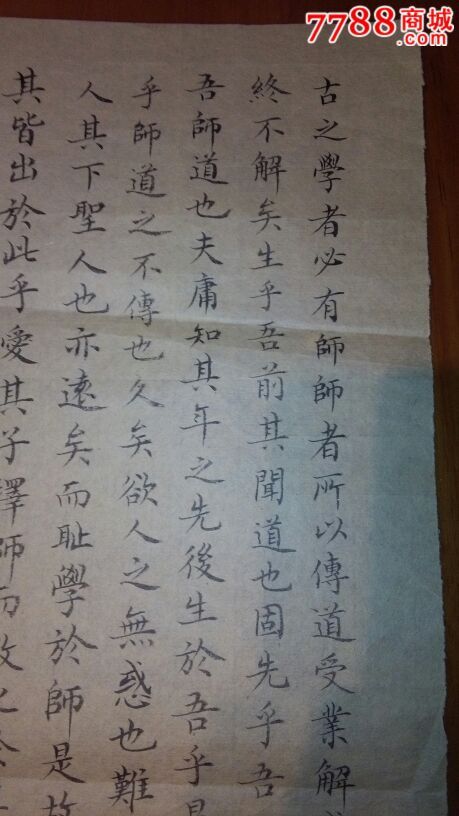 7788商城
.com
古之學者必有師師者所以傳道受業解
終不解矣生乎吾前其聞道也固先乎吾
吾師道也夫庸知其年之先後生於吾乎是
乎師道之不傳也久矣欲人之無惑也難
人其下聖人也亦遠矣而耻學於師是故
其皆出於此乎愛其子擇師而教之